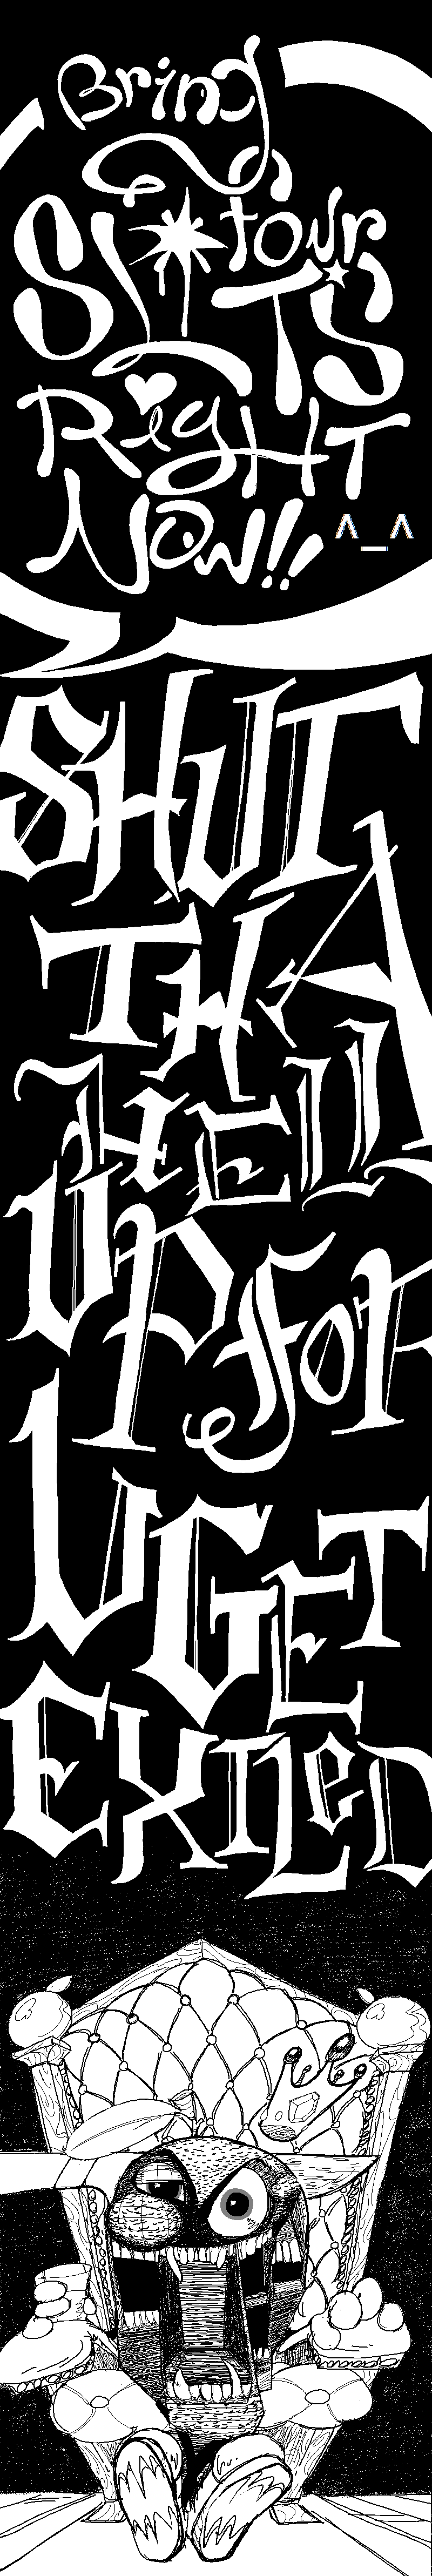 Bring
Your
SL*TS
RigHT
Now!! ^_^
SHUT
THA
HELL
UP FOR
U GET
EXILeD